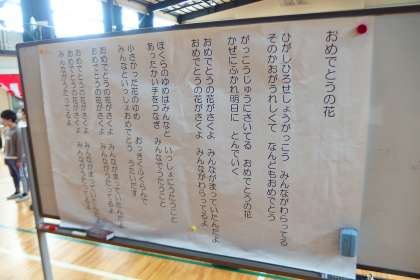 おめでとうの花
ひがしひろせしょうがっこう　みんながわらってる
そのかおがうれしくて　なんどもおめでとう
がっこうじゅうにさいてる　おめでとうの花
かぜにふかれ明日に　とんでいく
おめでとうの花がさくよ　みんながまっていたんだよ
おめでとうの花がさくよ　みんながわらってるよ
ぼくらのゆめはみんなと　いっしょにうたうこと
あったかい手をつなぎ　みんなでうたうこと
小さかった花のゆめ　おっきくふくらんで
みんなといっしょおめでとう　うたいだす
おめでとうの花がさくよ　みんながまっていたんだよ
おめでとうの花がさくよ　みんながわらってるよ
おめでとうの花がさくよ
おめでとうの花がさくよ
みんながわらってるよ